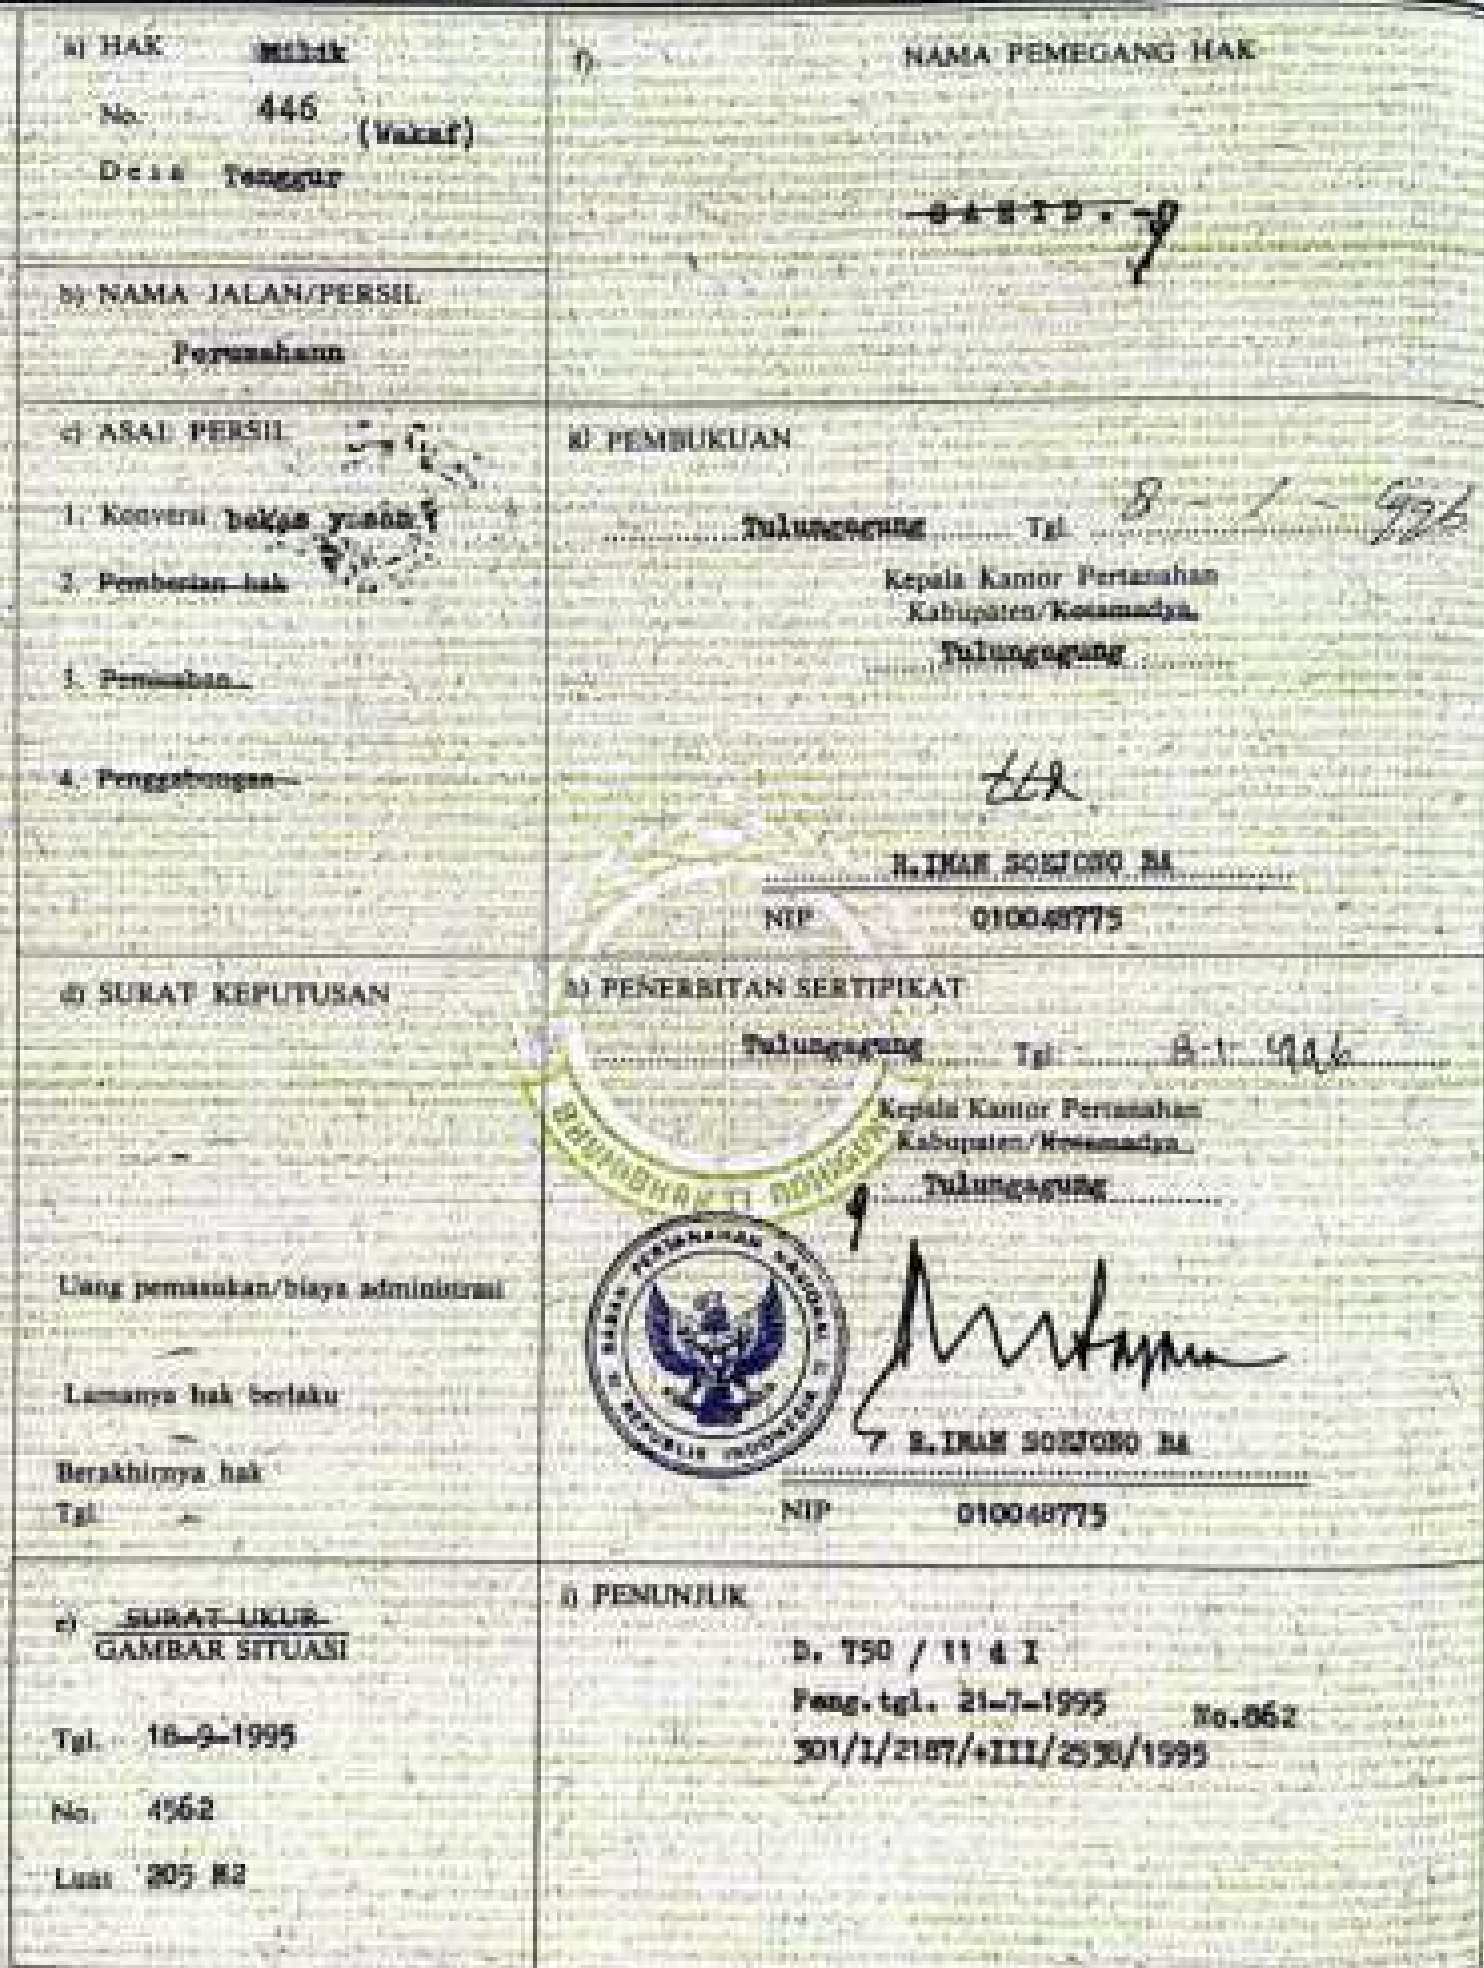 a) HAK Milik
No. 446 (Wakaf)
Desa Tenggur
b) NAMA JALAN/PERSIL
Perusahann
c) ASAL PERSIL
1. Konversi bekas yasan
2. Pemberian hak
3. Pemisahan
4. Penggabungan
d) SURAT KEPUTUSAN
Uang pemasukan/biaya administrasi
Lamanya hak berlaku
Berakhirnya hak
Tgl.
e) SURAT UKUR
GAMBAR SITUASI
Tgl. 18-9-1995
No. 4562
Luas 205 M2
f) NAMA PEMEGANG HAK
g) PEMBUKUAN
Tulungagung Tgl. 8 - 1 - 996
Kepala Kantor Pertanahan
Kabupaten/Kotamadya
Tulungagung
ttd.
R.IMAM SOEJONO BA
NIP 010048775
h) PENERBITAN SERTIPIKAT
Tulungagung Tgl. 8-1-996
Kepala Kantor Pertanahan
Kabupaten/Kotamadya
Tulungagung
BADAN PERTANAHAN NASIONAL
REPUBLIK INDONESIA
R.IMAM SOEJONO BA
NIP 010048775
i) PENUNJUK
D. 750 / 11 & I
Peng.tgl. 21-7-1995 No.862
301/I/2187/+III/2538/1995